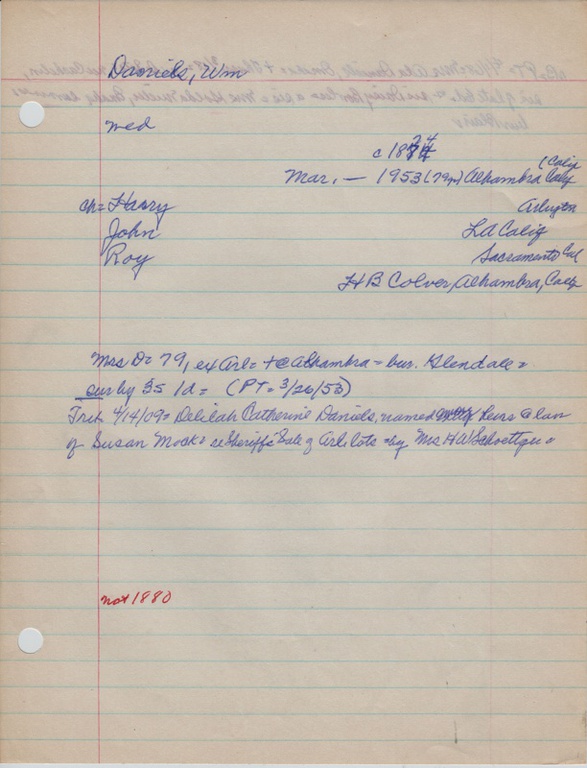 Daniels, Wm
med
c 1874
Mar, — 1953 (79yr) Alhambra Calif
ch = Harry Arlington
John LA Calif
Roy Sacramento Cal
H B Colver, Alhambra, Calif
Mrs D = 79, ex Arl = + @ Alhambra = bur. Glendale =
sur by 3s 1d = (PT = 3/26/53)
Trib 4/14/09 = Delilah Catherine Daniels, named among heirs @ law
of Susan Mock = re Sheriff's Sale of Arl lots = by Mrs H W Schoettger =
not 1880